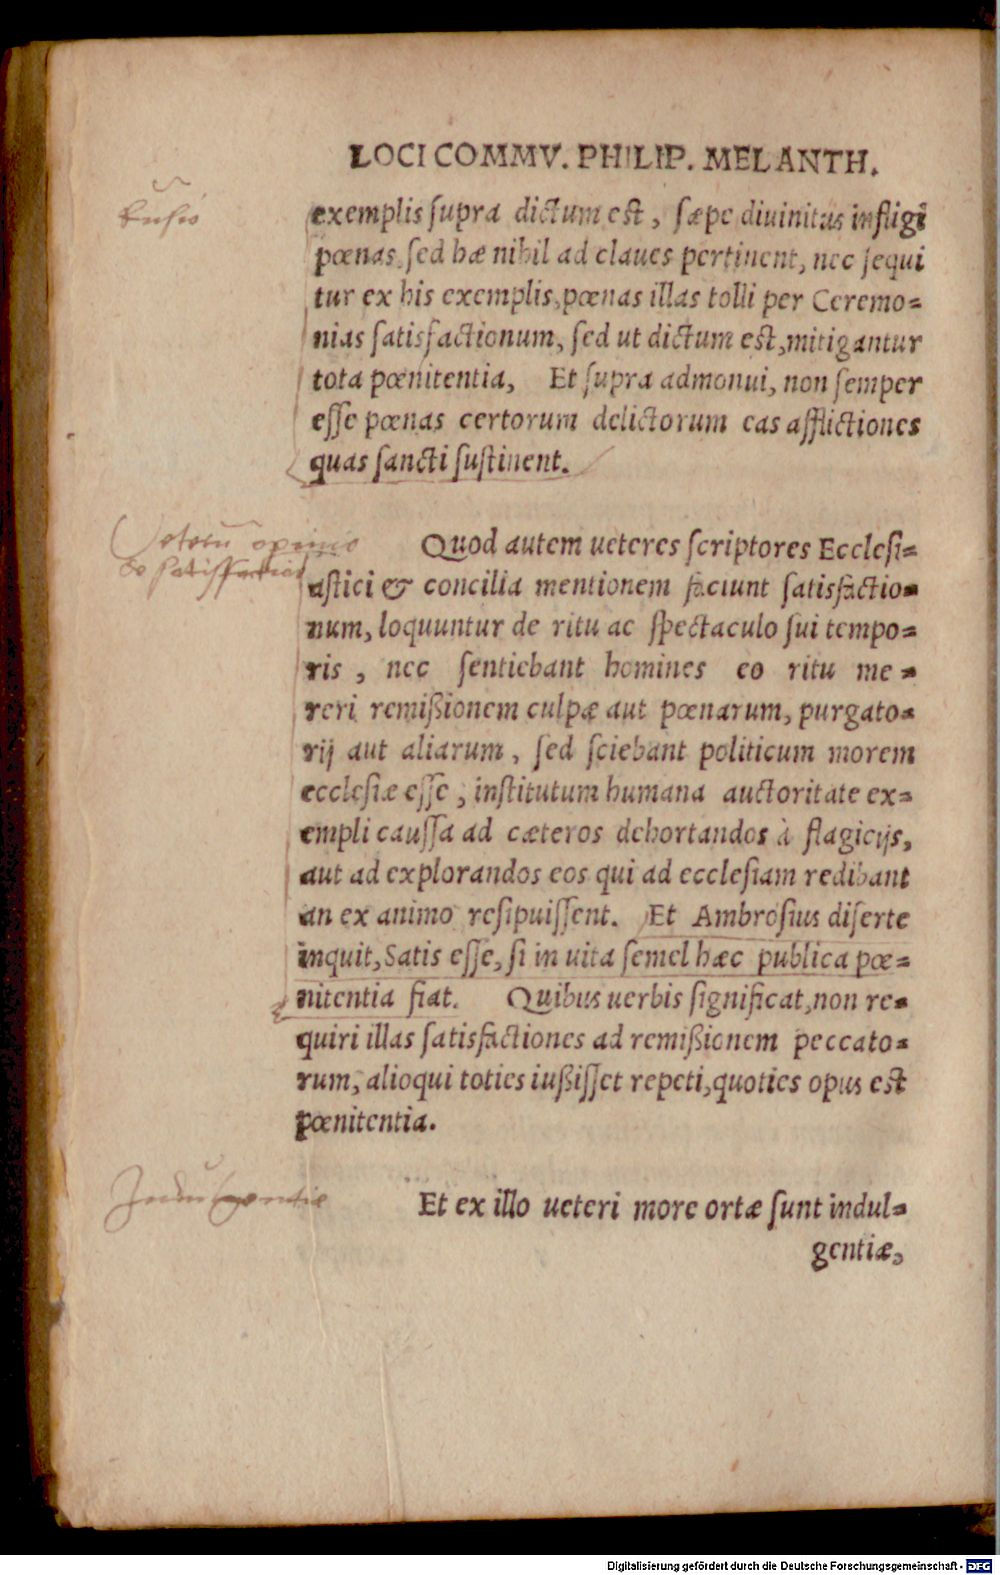 LOCI COMMV. PHILIP. MELANTH.
exemplis supra dictum est, sæpe diuinitus infligi
pœnas, sed hæ nihil ad claues pertinent, nec sequi
tur ex his exemplis, pœnas illas tolli per Ceremo=
nias satisfactionum, sed ut dictum est, mitigantur
tota pœnitentia, Et supra admonui, non semper
esse pœnas certorum delictorum eas afflictiones
quas sancti sustinent.
Veterū opinio
de satisfactioe
Quod autem ueteres scriptores Ecclesi=
astici & concilia mentionem faciunt satisfactio=
num, loquuntur de ritu ac spectaculo sui tempo=
ris, nec sentiebant homines eo ritu me=
reri remißionem culpæ aut pœnarum, purgato=
rij aut aliarum, sed sciebant politicum morem
ecclesiæ esse, institutum humana auctoritate ex=
empli caussa ad cæteros dehortandos à flagicijs,
aut ad explorandos eos qui ad ecclesiam redibant
an ex animo resipuissent. Et Ambrosius diserte
inquit, Satis esse, si in uita semel hæc publica pœ=
nitentia fiat. Quibus uerbis significat, non re=
quiri illas satisfactiones ad remißionem peccato=
rum, alioqui toties iußisset repeti, quoties opus est
pœnitentia.
Indulgentie
Et ex illo ueteri more ortæ sunt indul=
gentiæ,
Digitalisierung gefördert durch die Deutsche Forschungsgemeinschaft - DFG